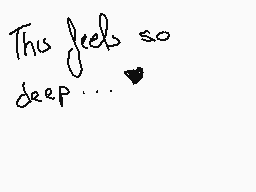 This feels so
deep... ♥